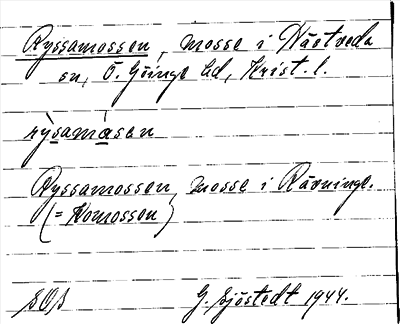 Ryssamossen, mosse i Nävtveda
sn, Ö. Göinge hd, Krist. l.
rỳsamàsen
Ryssamossen, mosse i Rävninge.
(= Komossen)
SOB
G. Sjöstedt 1944.